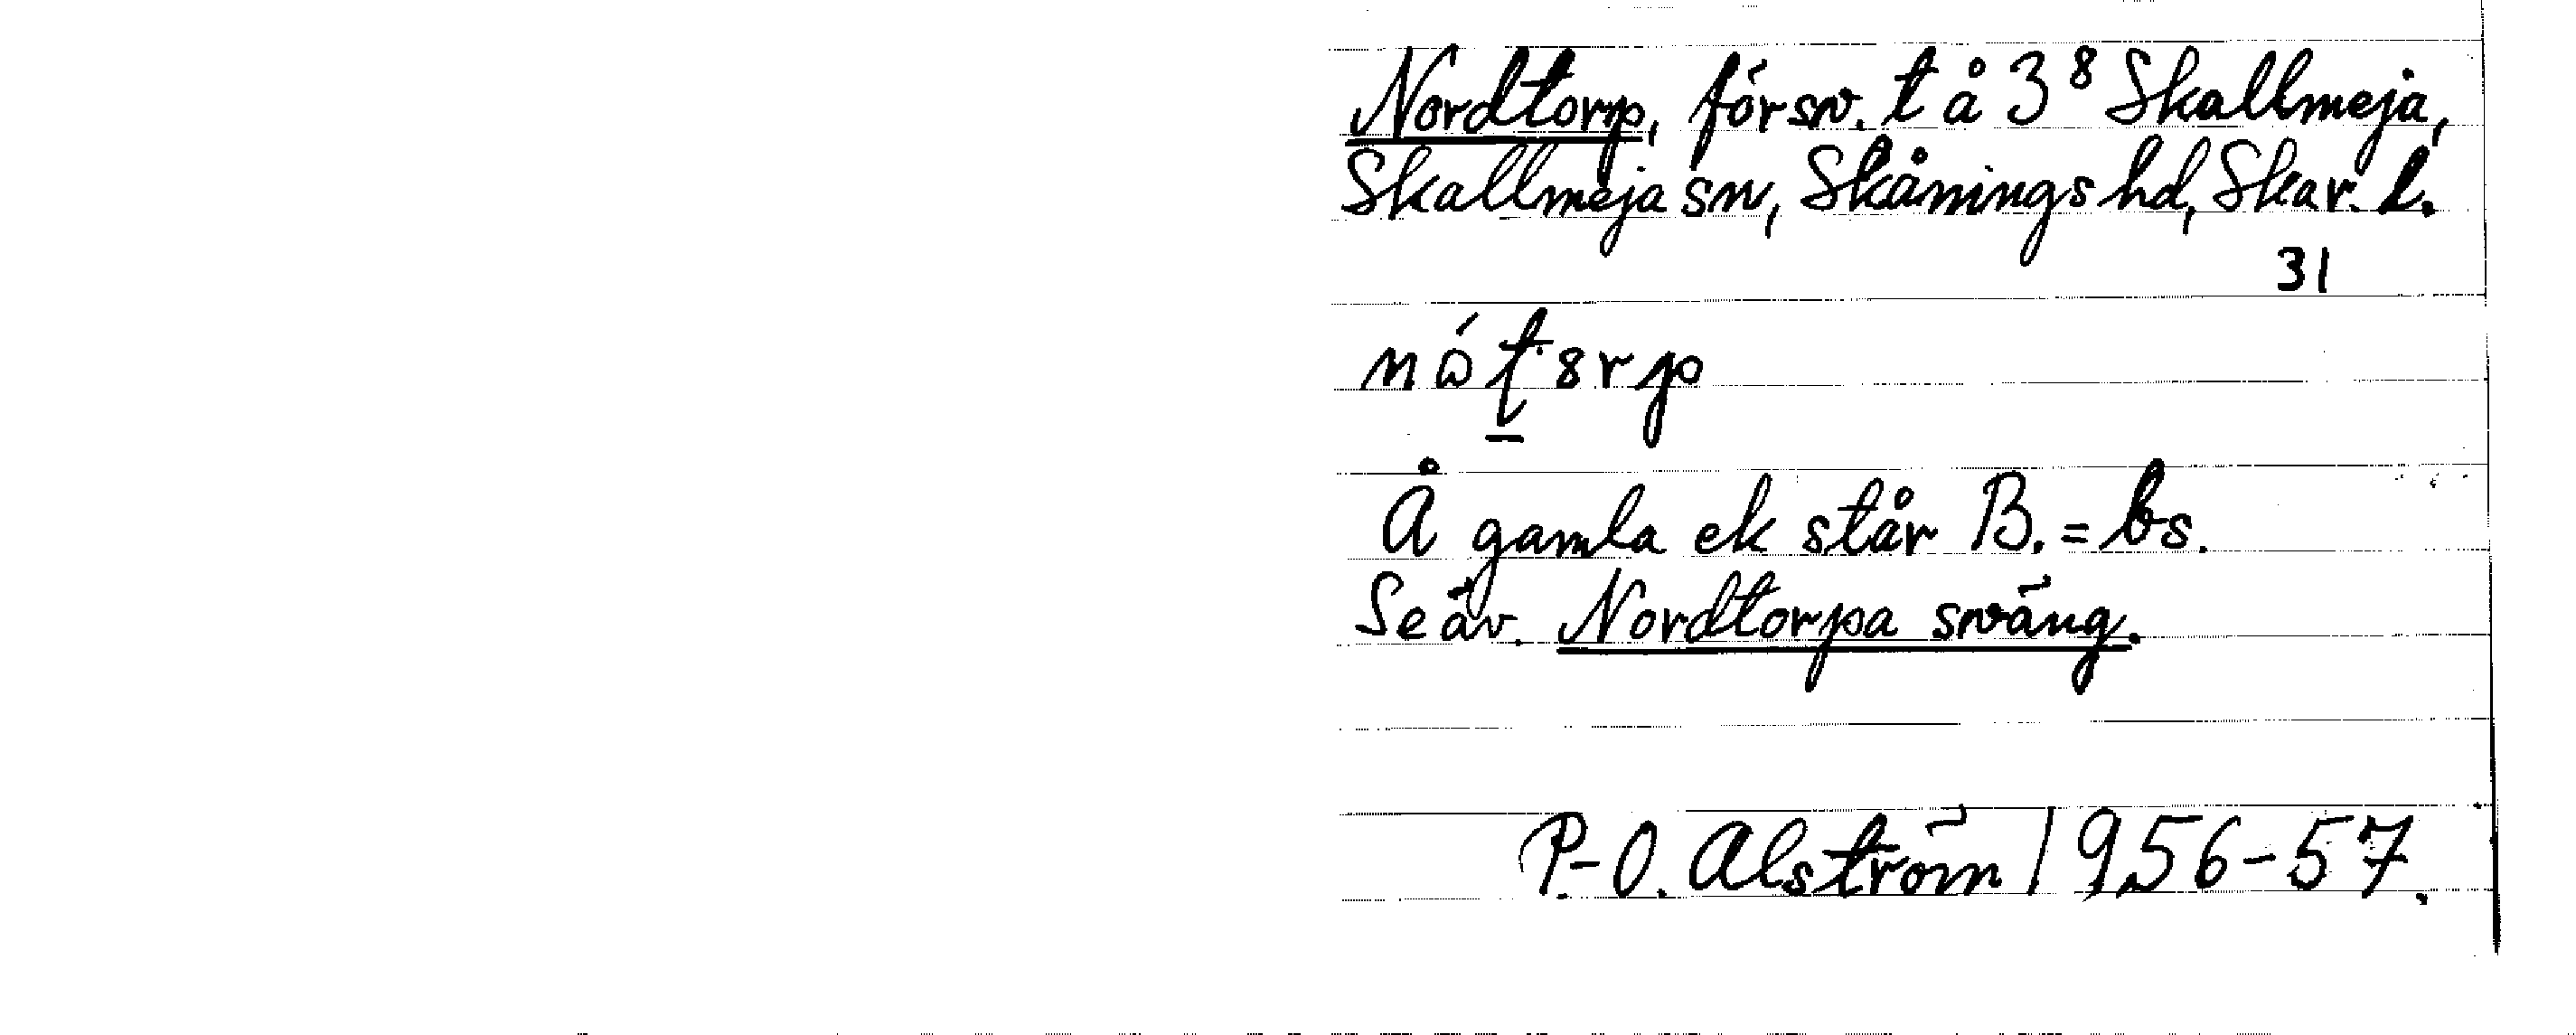 Nordtorp, försv. t å 3⁸ Skallmeja,
Skallmeja sn, Skånings hd, Skar. l.
31
Å gamla ek står B. = bs.
Se äv. Nordtorpa sväng.
P.-O. Alström 1956-57.